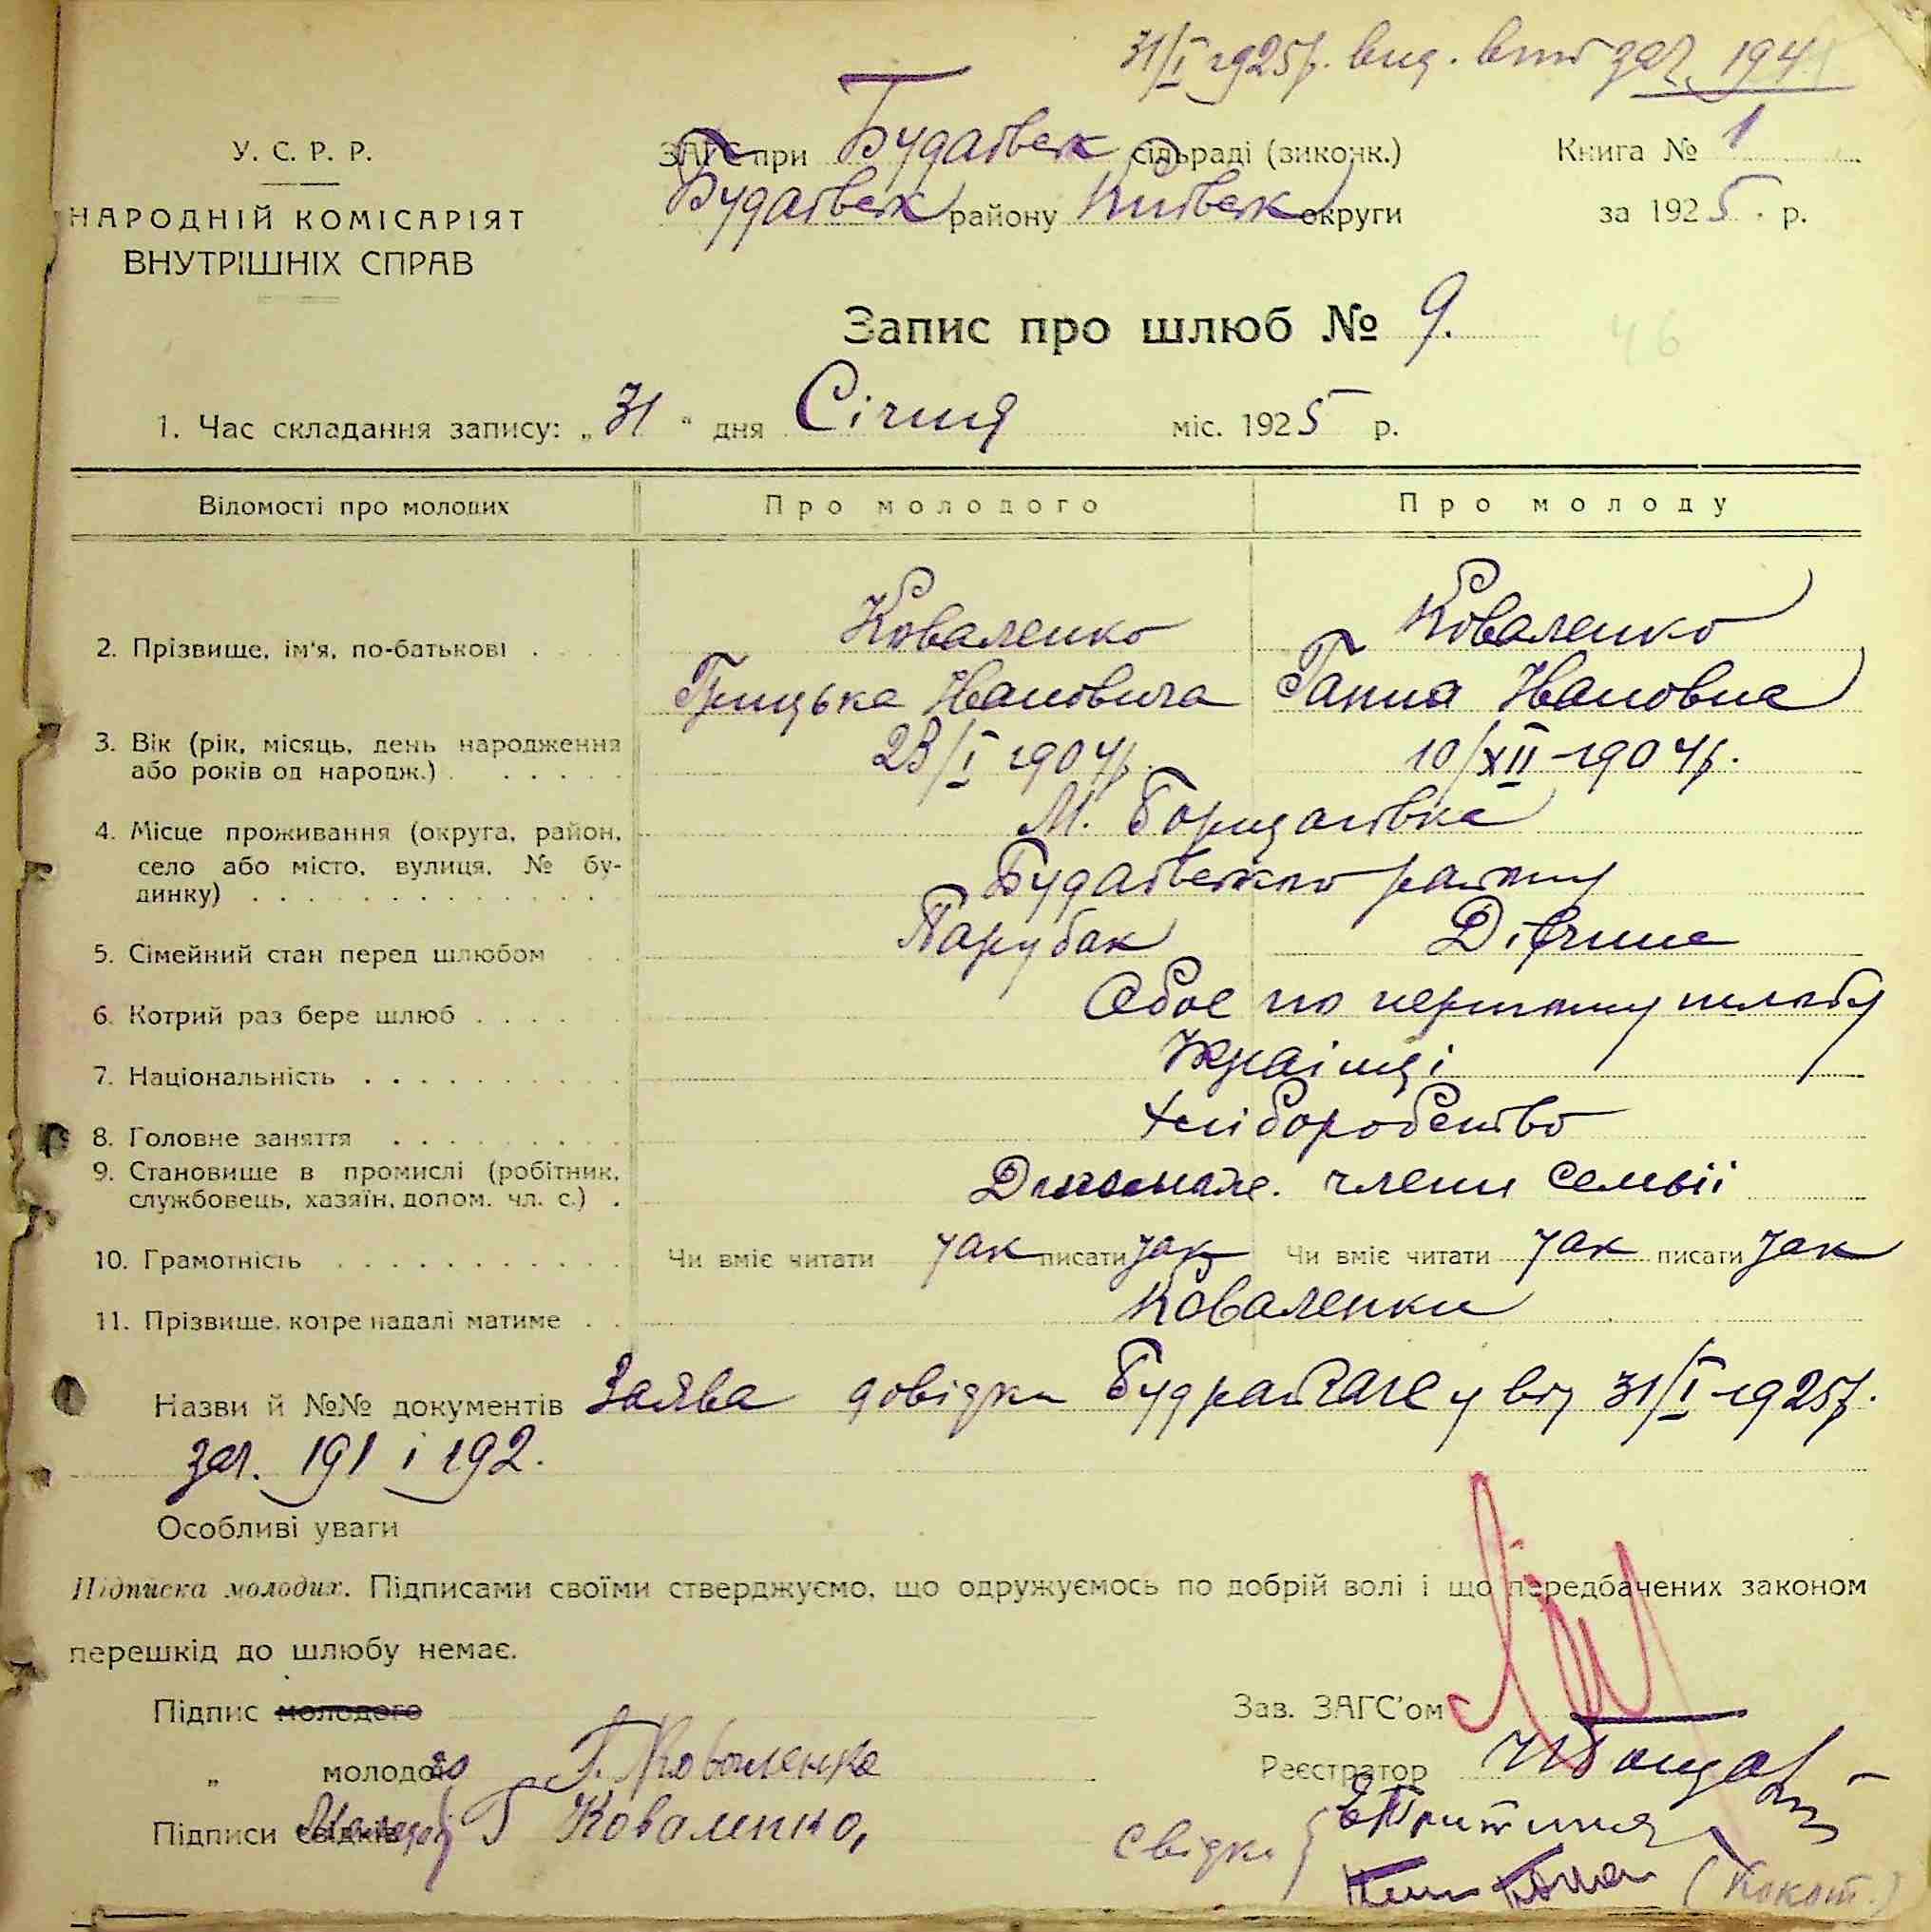 31/I 1925р. вид. витяг зал. 194
У. С. Р. Р.
ЗАГС при Будаївск сільраді (виконк.)
Книга № 1
Будаївск району Київськ округи
за 1925 р.
НАРОДНІЙ КОМІСАРІЯТ
ВНУТРІШНІХ СПРАВ
Запис про шлюб № 9.
46
1. Час складання запису: „ 31 “ дня Січня міс. 1925 р.
Відомості про молодих
Про молодого
Про молоду
2. Прізвище, ім'я, по-батькові
Коваленко
Грицька Івановича
Коваленко
Ганна Івановна
3. Вік (рік, місяць, день народження
або років од народж.)
23/I 1904р.
10/XII-1904р.
4. Місце проживання (округа, район,
село або місто, вулиця, № бу-
динку)
М. Борщагівка
Будаївського району
5. Сімейний стан перед шлюбом
Парубак
Дівчина
6. Котрий раз бере шлюб
Обоє по першому шлюбу
7. Національність
Українці
8. Головне заняття
Хліборобство
9. Становище в промислі (робітник,
службовець, хазяїн, допом. чл. с.)
члени семьії
10. Грамотність
Чи вміє читати так писати так
Чи вміє читати так писати так
11. Прізвище, котре надалі матиме
Коваленки
Назви й №№ документів Заява довідки від 31/I-1925р.
зал. 191 і 192.
Особливі уваги
Підписка молодих. Підписами своїми стверджуємо, що одружуємось по добрій волі і що передбачених законом
перешкід до шлюбу немає.
Підпис молодого
Зав. ЗАГС'ом
„ молодого Г. Коваленко
Реєстратор
Підписи свідків Молодої Г Коваленко,
Свідки